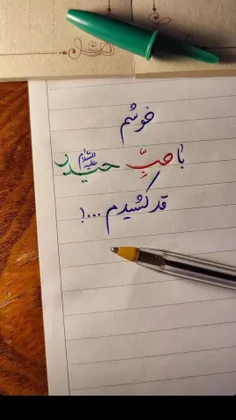 خوشم
با حبِّ حیدر علیه‌السلام
قد کشیدم...!